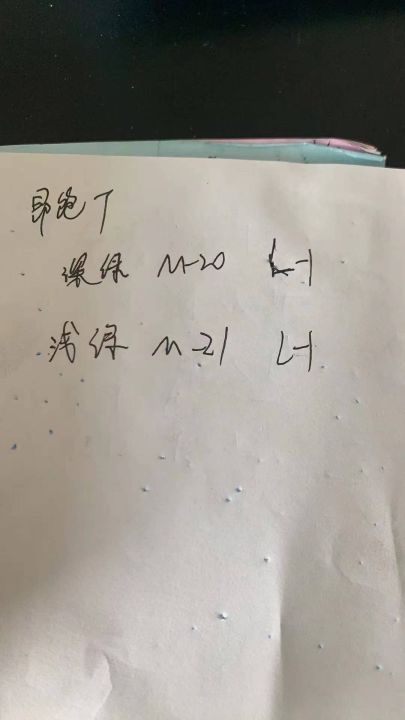 昂跑T
深绿 M-20 L-1
浅绿 M-21 L-1